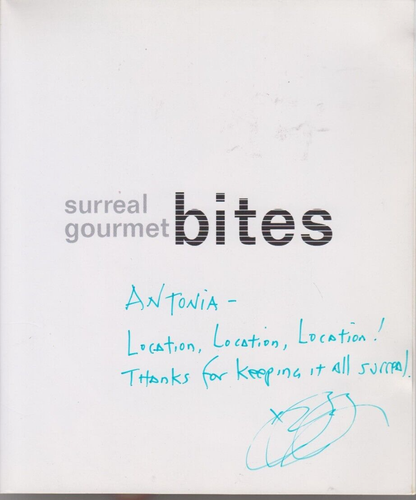 surreal
gourmet bites
ANTONIA –
LOCATION, LOCATION, LOCATION!
THANKS for keeping it All SURREAL.